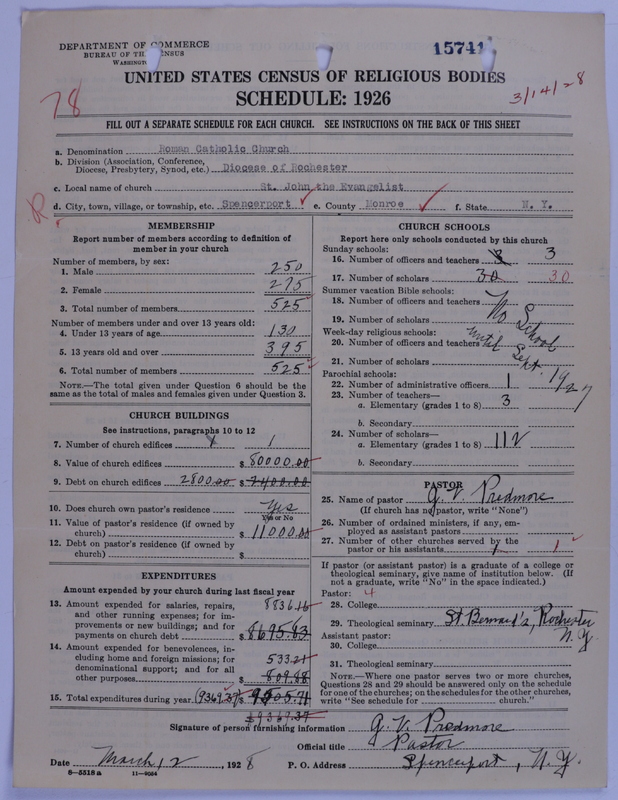 DEPARTMENT OF COMMERCE
BUREAU OF THE CENSUS
WASHINGTON
15741
78
UNITED STATES CENSUS OF RELIGIOUS BODIES
SCHEDULE: 1926
3/14/28
FILL OUT A SEPARATE SCHEDULE FOR EACH CHURCH. SEE INSTRUCTIONS ON THE BACK OF THIS SHEET
a. Denomination Roman Catholic Church
b. Division (Association, Conference,
Diocese, Presbytery, Synod, etc.) Diocese of Rochester
c. Local name of church St. John the Evangelist
d. City, town, village, or township, etc. Spencerport e. County Monroe f. State N. Y.
R
MEMBERSHIP
Report number of members according to definition of
member in your church
Number of members, by sex:
1. Male 250
2. Female 275
3. Total number of members 525
Number of members under and over 13 years old:
4. Under 13 years of age 130
5. 13 years old and over 395
6. Total number of members 525
NOTE.—The total given under Question 6 should be the
same as the total of males and females given under Question 3.
CHURCH BUILDINGS
See instructions, paragraphs 10 to 12
7. Number of church edifices 1 1
8. Value of church edifices $ 80000.00
9. Debt on church edifices 2800.00 $ 2400.00
10. Does church own pastor's residence Yes
Yes or No
11. Value of pastor's residence (if owned by
church) $ 11000.00
12. Debt on pastor's residence (if owned by
church) $
EXPENDITURES
Amount expended by your church during last fiscal year
13. Amount expended for salaries, repairs,
and other running expenses; for im-
provements or new buildings; and for
payments on church debt 8836.16
$ 8695.83
14. Amount expended for benevolences, in-
cluding home and foreign missions; for
denominational support; and for all
other purposes 533.21
$ 809.88
15. Total expenditures during year (9369.37) $ 9505.71
$ 9369.37
CHURCH SCHOOLS
Report here only schools conducted by this church
Sunday schools:
16. Number of officers and teachers 3 3
17. Number of scholars 30 30
Summer vacation Bible schools:
18. Number of officers and teachers
19. Number of scholars
No School
until Sept. 1927
Week-day religious schools:
20. Number of officers and teachers
21. Number of scholars
Parochial schools:
22. Number of administrative officers 1
23. Number of teachers—
a. Elementary (grades 1 to 8) 3
b. Secondary
24. Number of scholars—
a. Elementary (grades 1 to 8) 112
b. Secondary
PASTOR
25. Name of pastor G. V. Predmore
(If church has no pastor, write "None")
26. Number of ordained ministers, if any, em-
ployed as assistant pastors
27. Number of other churches served by the
pastor or his assistants 1 1
If pastor (or assistant pastor) is a graduate of a college or
theological seminary, give name of institution below. (If
not a graduate, write "No" in the space indicated.)
Pastor: 4
28. College
29. Theological seminary St. Bernard's, Rochester
N. Y.
Assistant pastor:
30. College
31. Theological seminary
NOTE.—Where one pastor serves two or more churches,
Questions 28 and 29 should be answered only on the schedule
for one of the churches; on the schedules for the other churches,
write "See schedule for church."
Signature of person furnishing information G. V. Predmore
Official title Pastor
Date March 12 1928 P. O. Address Spencerport, N. Y.
8—5518 a 11—9034